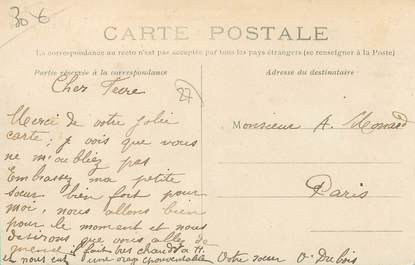 30 €
CARTE POSTALE
La correspondance au recto n'est pas acceptée par tous les pays étrangers (se renseigner à la Poste)
Partie réservée à la correspondance
Adresse du destinataire
Cher
27
Merci de votre jolie
carte; je vois que vous
ne m'oubliez pas
Embrassez ma petite
sœur bien fort pour
moi, nous allons bien
pour le moment et nous
desirons que vous alliez de
meme il fait très chaud à
nous est une orage épouvantable
Votre sœur V. Dubois
Monsieur A.
Paris